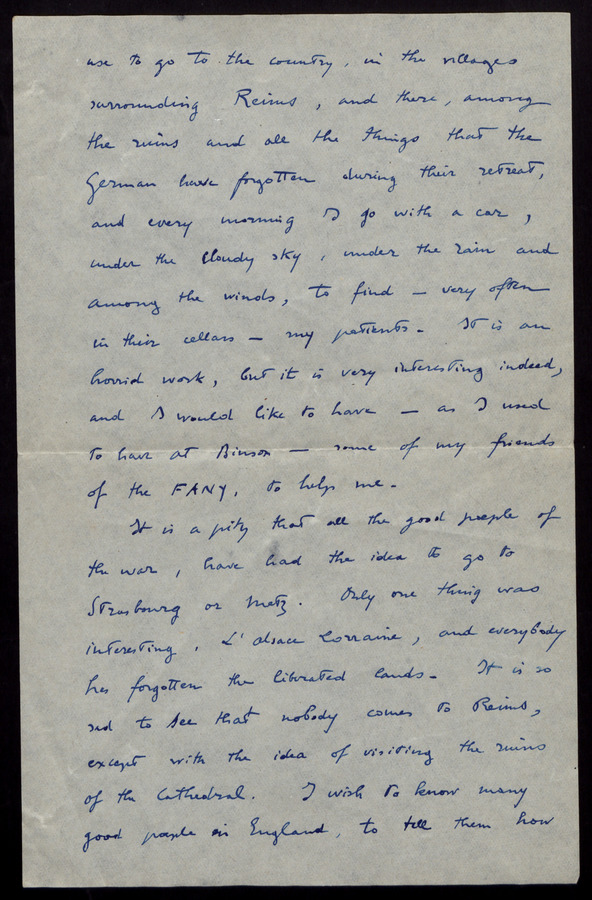 use to go to the country, in the villages
surrounding Reims, and there, among
the ruins and all the things that the
German have forgotten during their retreat,
and every morning I go with a car,
under the cloudy sky, under the rain and
among the winds, to find — very often
in their cellars — my patients - It is an
horrid work, but it is very interesting indeed,
and I would like to have — as I used
to have at Binson — some of my friends
of the FANY, to help me -
It is a pity that all the good people of
the war, have had the idea to go to
Strasbourg or Metz. Only one thing was
interesting, L'alsace Lorraine, and everybody
has forgotten the liberated lands - It is so
sad to see that nobody comes to Reims,
except with the idea of visiting the ruins
of the Cathedral. I wish to know many
good people in England, to tell them how